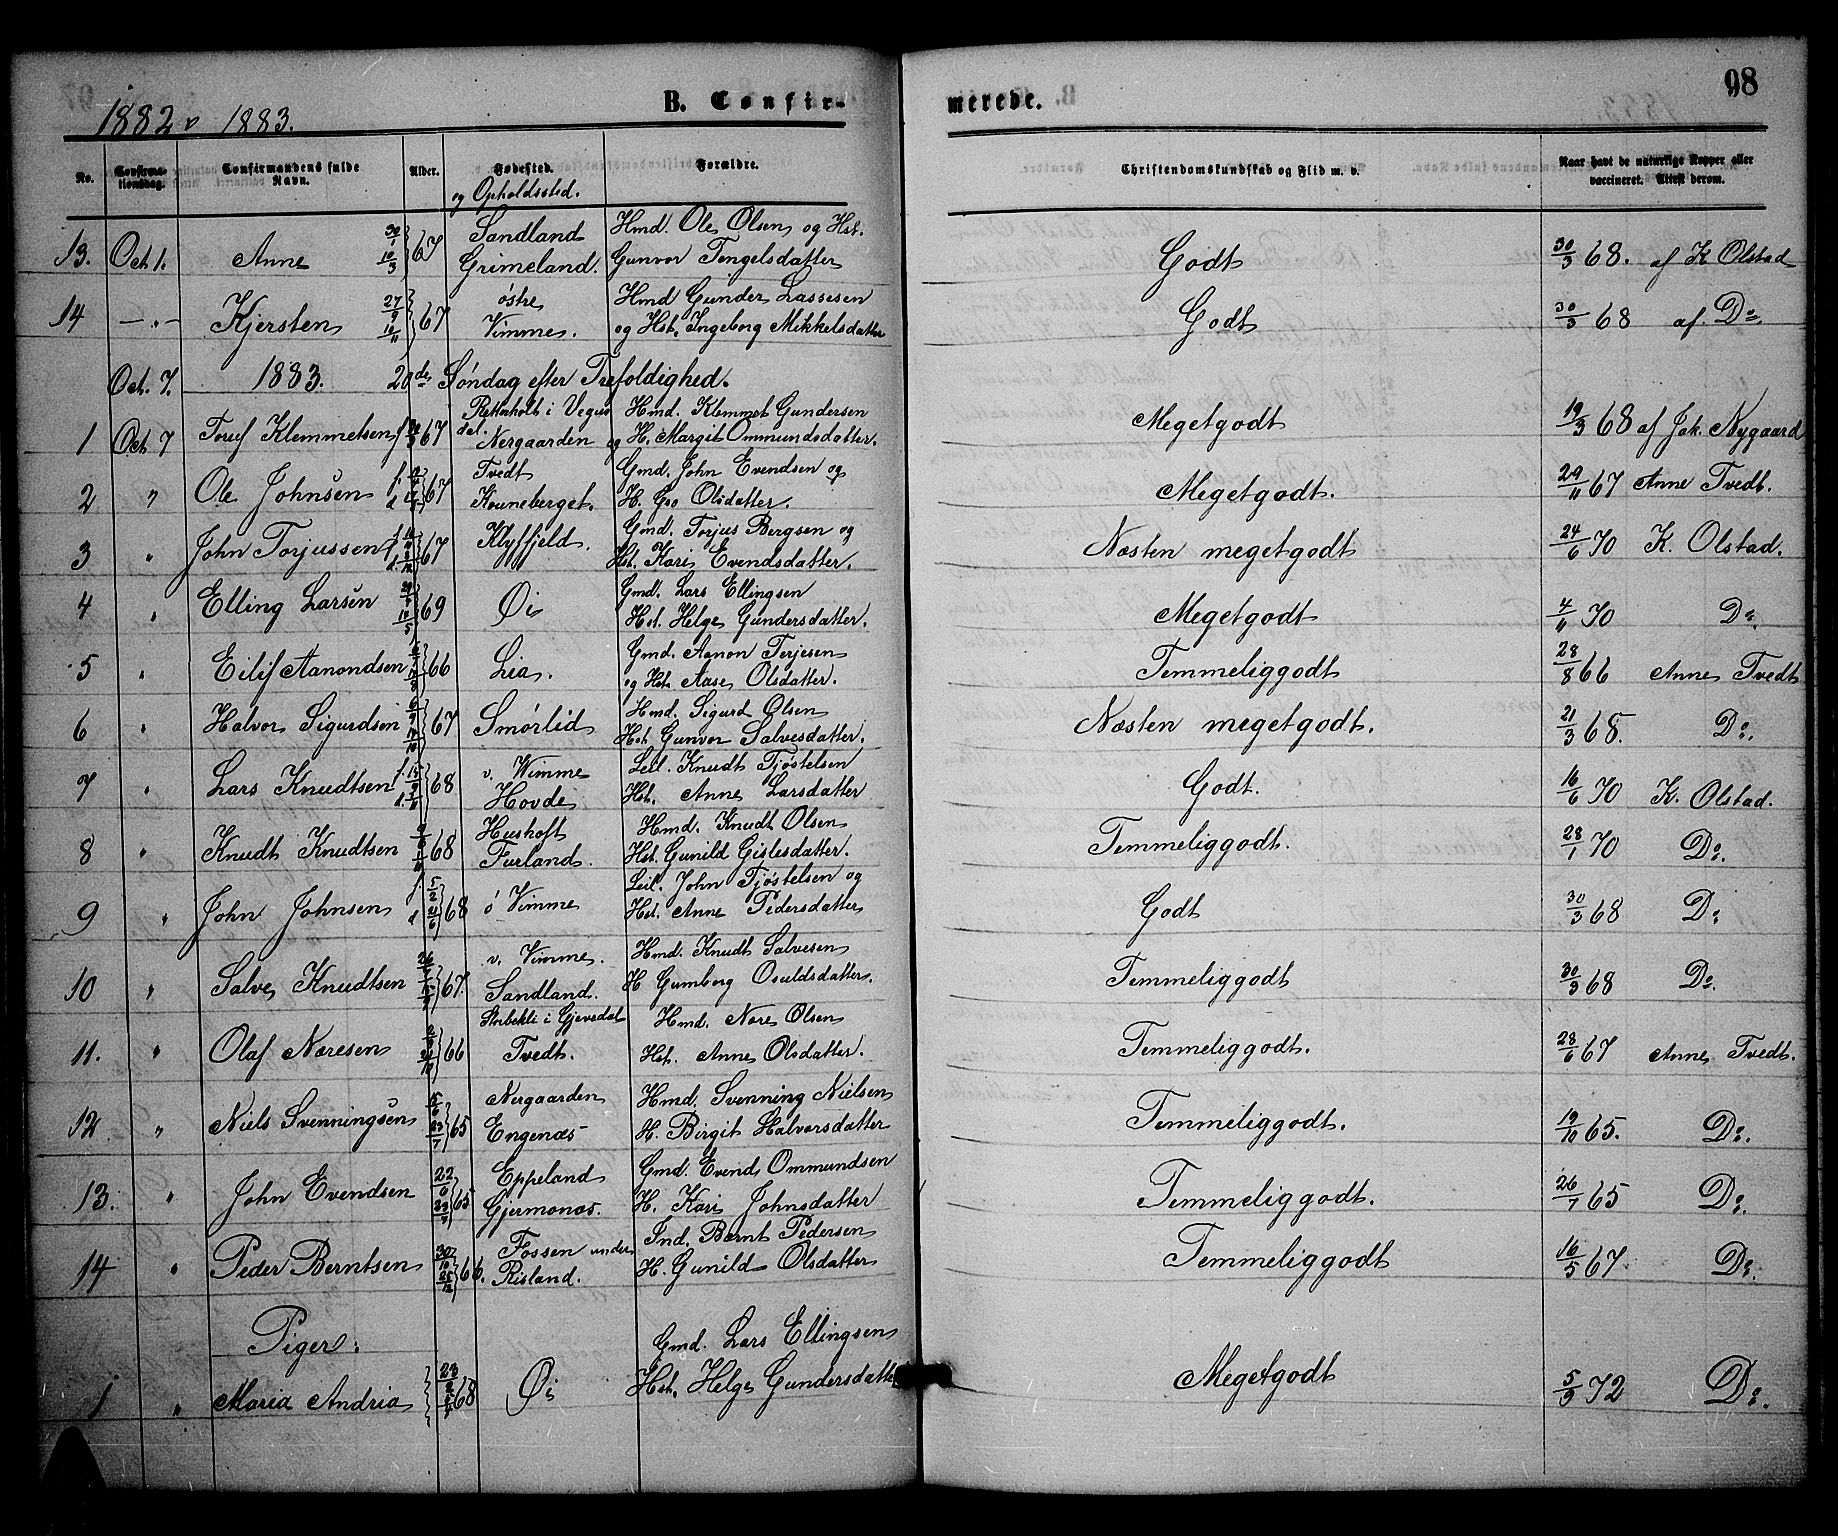 1882 & 1883.
B. Confir-
merede.
98
No.
Confirmationsdag.
Confirmandens fulde Navn.
Alder.
Fødested.
og Opholdssted.
Forældre.
Christendomskundskab og Flid m. v.
Naar havt de naturlige Kopper eller vaccineret. Attest derom.
13. Oct 1. Anne 30/1 10/3 67 Sandland Grimeland. Hmd. Ole Olsen og Hst. Gunvor Tengelsdatter Godt 30/3 68. af K Olstad
14 —"— Kjersten 27/9 10/11 67 østre Vimme. Hmd Gunder Lassesen og Hst. Ingeborg Mikkelsdatter Godt 30/3 68 af. Do.
Oct. 7. 1883. 20de Søndag efter Trefoldighed.
1 Oct. 7 Toruf Klemmetsen 67 i Vegusdal. Nergaarden Hmd. Klemmet Gundersen og H. Margit Ommundsdatter. Megetgodt 19/3 68 af Jak. Nygaard
2 " Ole Johnsen 67 Tvedt Kouneberget. Gmd. John Evendsen og H. Gro Olsdatter. Megetgodt. 29/11 67 Anne Tvedt.
3 " John Torjussen 67 Klyffjeld. Gmd. Torjus Bergsen og Hst. Kari Evendsdatter. Næsten megetgodt 24/6 70 K. Olstad.
4 " Elling Larsen 69 Øi Gmd. Lars Ellingsen Hst. Helge Gundersdatter. Megetgodt 4/11 70 Do.
5 " Eilif Aanondsen 66 Lia. Gmd. Aanon Terjesen og Hst. Aase Olsdatter. Temmeliggodt 28/8 66 Anne Tvedt
6 " Halvor Sigurdsen 67 Smørlid Hmd. Sigurd Olsen Hst. Gunvor Salvesdatter. Næsten megetgodt. 21/3 68. Do.
7 " Lars Knudtsen 68 v. Wimme Hovde Leil. Knudt Tjøstelsen Hst. Anne Larsdatter Godt. 16/6 70 K. Olstad.
8 " Knudt Knudtsen 68 Husholt Furland. Hmd. Knudt Olsen Hst. Gunild Gislesdatter. Temmeliggodt. 28/1 70 Do.
9 " John Johnsen f. 5/2 d 21/6 68 ø Vimme Leil. John Tjøstelsen og Hst. Anne Pedersdatter Godt 30/3 68 Do.
10 " Salve Knudtsen 67. v. Vimme. Sandland. Hmd. Knudt Salvesen H Gumborg Osuldsdatter. Temmeliggodt 30/3 68 Do.
11. " Olaf Næresen 66 Stribekli i Gjevedal Tvedt. Hmd. Nære Olsen Hst. Anne Olsdatter. Temmeliggodt. 28/6 67 Anne Tvedt.
12 " Niels Svenningsen 65 Nergaarden Engenæs Hmd. Svenning Nielsen H. Birgit Halvorsdatter Temmeliggodt. 19/10 65. Do.
13. " John Evendsen 65 Eppeland Gjermonæs. Gmd. Evend Ommundsen H. Kari Johnsdatter Temmeliggodt. 26/7 65 Do.
14 " Peder Berntsen 30/10 25/12 66. Fossen under Risland. Ind. Bernt Pedersen H. Gunild Olsdatter Temmeliggodt 16/5 67 Do.
Piger.
1 " Maria Andria 68 Øi Gmd. Lars Ellingsen Hst. Helge Gundersdatter Megetgodt 5/3 72 Do.